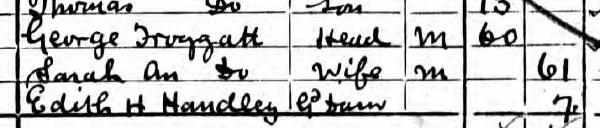 Thomas Do Son 13
George Froggatt Head M 60
Sarah An Do Wife M 61
Edith H Handley Gd Daur 7